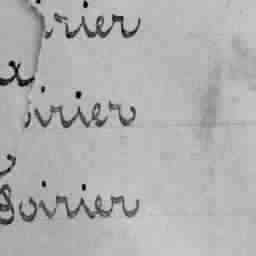 irier
x
oirier
Poirier